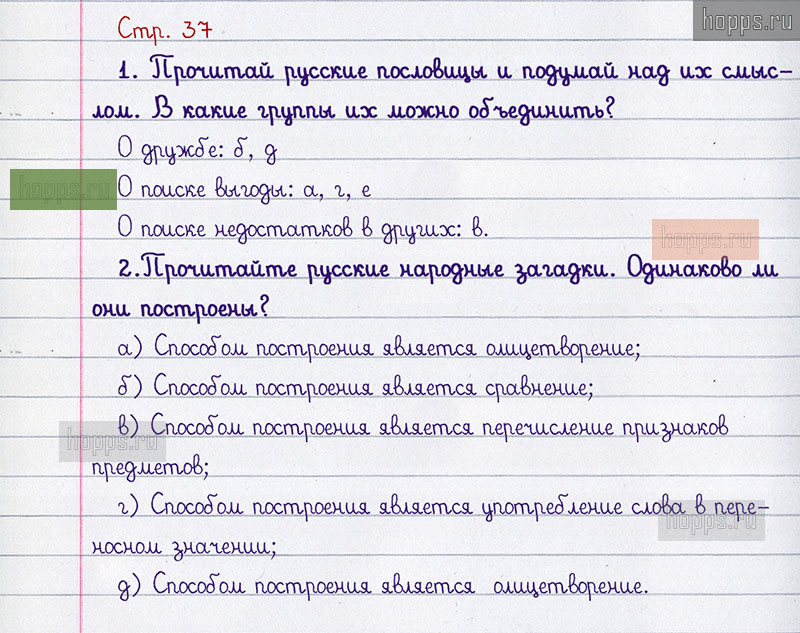 hopps.ru
Стр. 37
1. Прочитай русские пословицы и подумай над их смыс-
лом. В какие группы их можно объединить?
О дружбе: б, д
hopps.ru
О поиске выгоды: а, г, е
О поиске недостатков в других: в.
hopps.ru
2.Прочитайте русские народные загадки. Одинаково ли
они построены?
а) Способом построения является олицетворение;
б) Способом построения является сравнение;
в) Способом построения является перечисление признаков
hopps.ru
предметов;
г) Способом построения является употребление слова в пере-
hopps.ru
носном значении;
д) Способом построения является олицетворение.